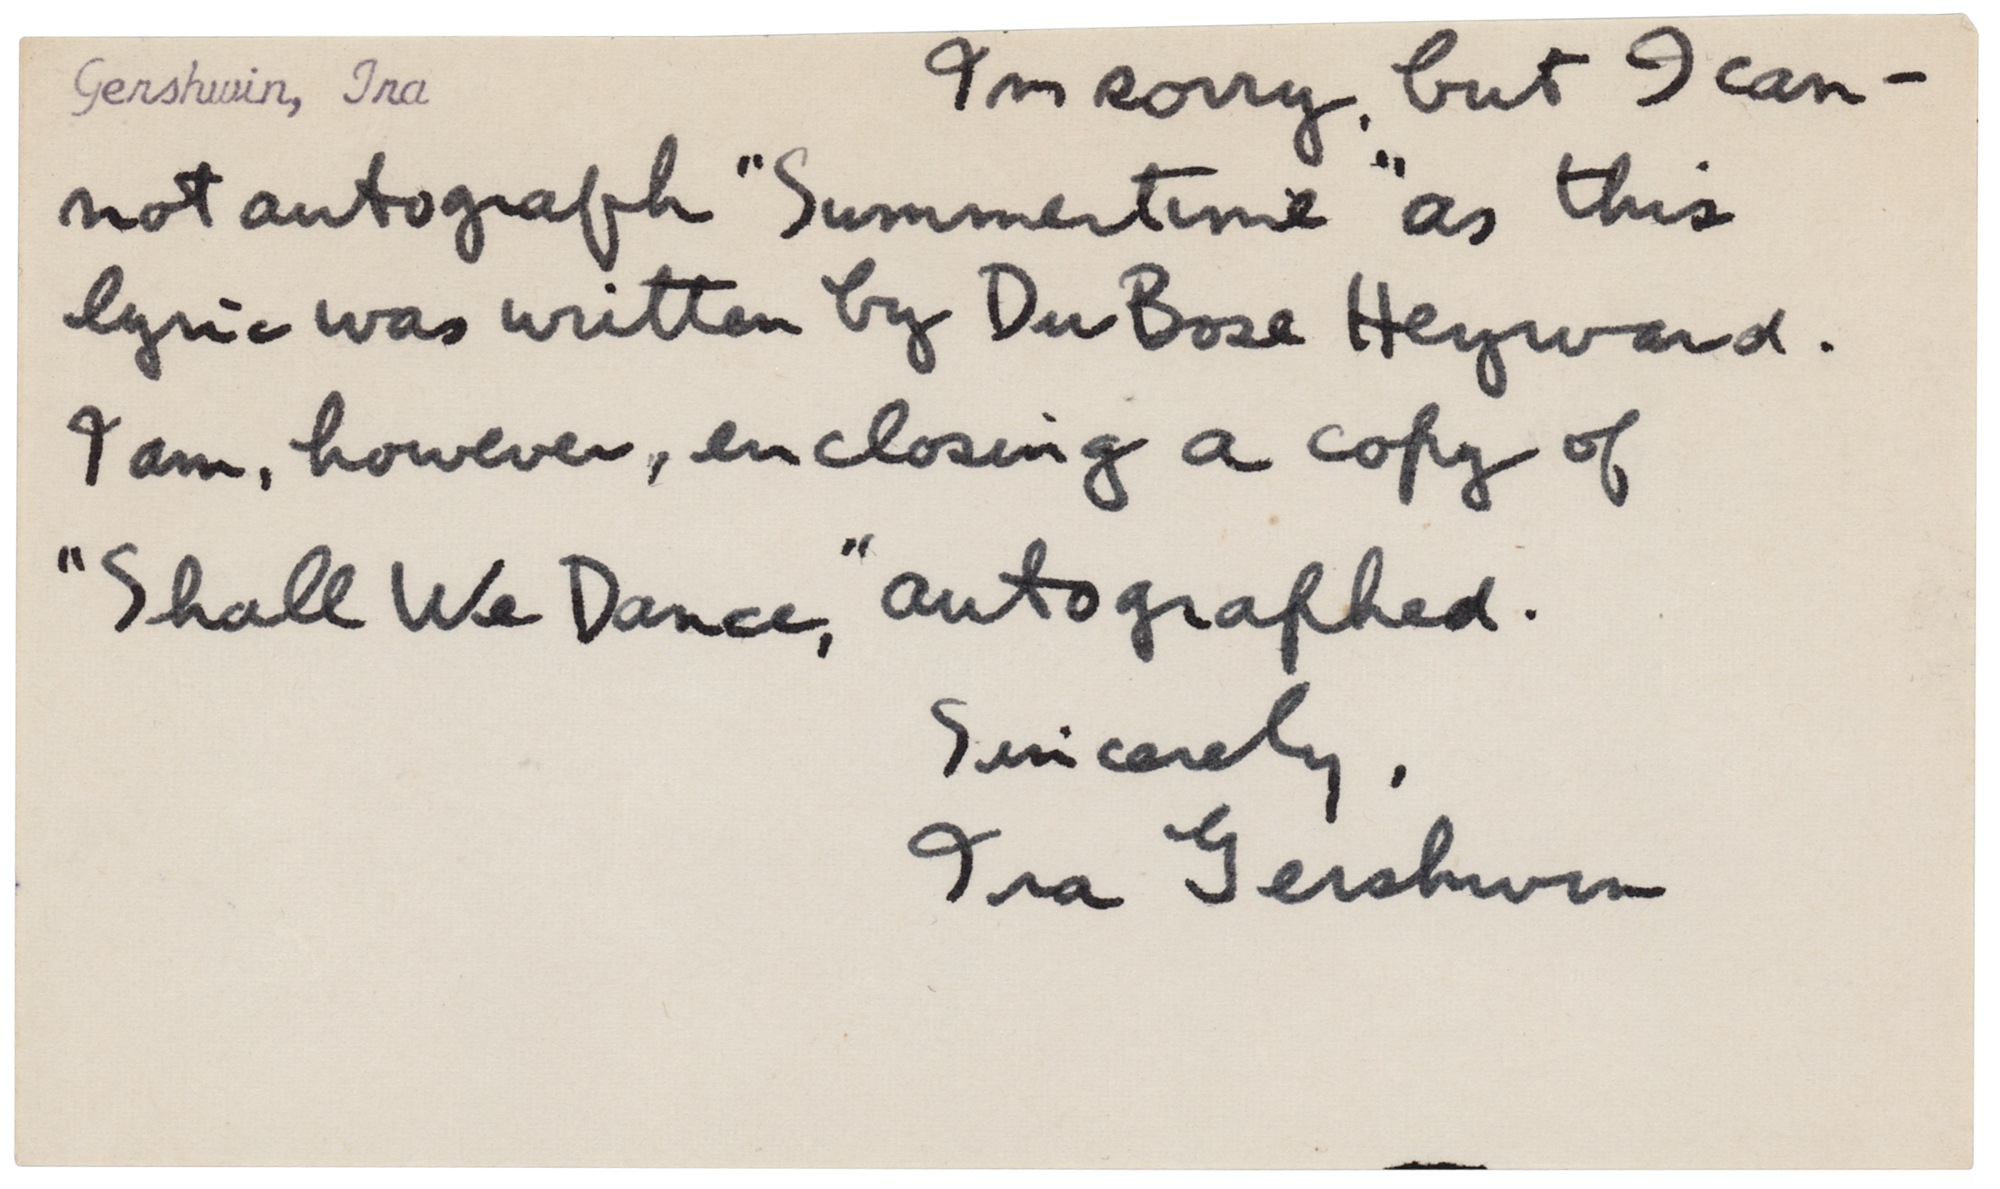 Gershwin, Ira
Im sorry, but I can-
not autograph "Summertime" as this
lyric was written by DuBose Heyward.
I am, however, enclosing a copy of
"Shall We Dance," autographed.
Sincerely,
Ira Gershwin